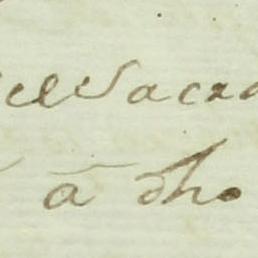 el Sacra
à dho